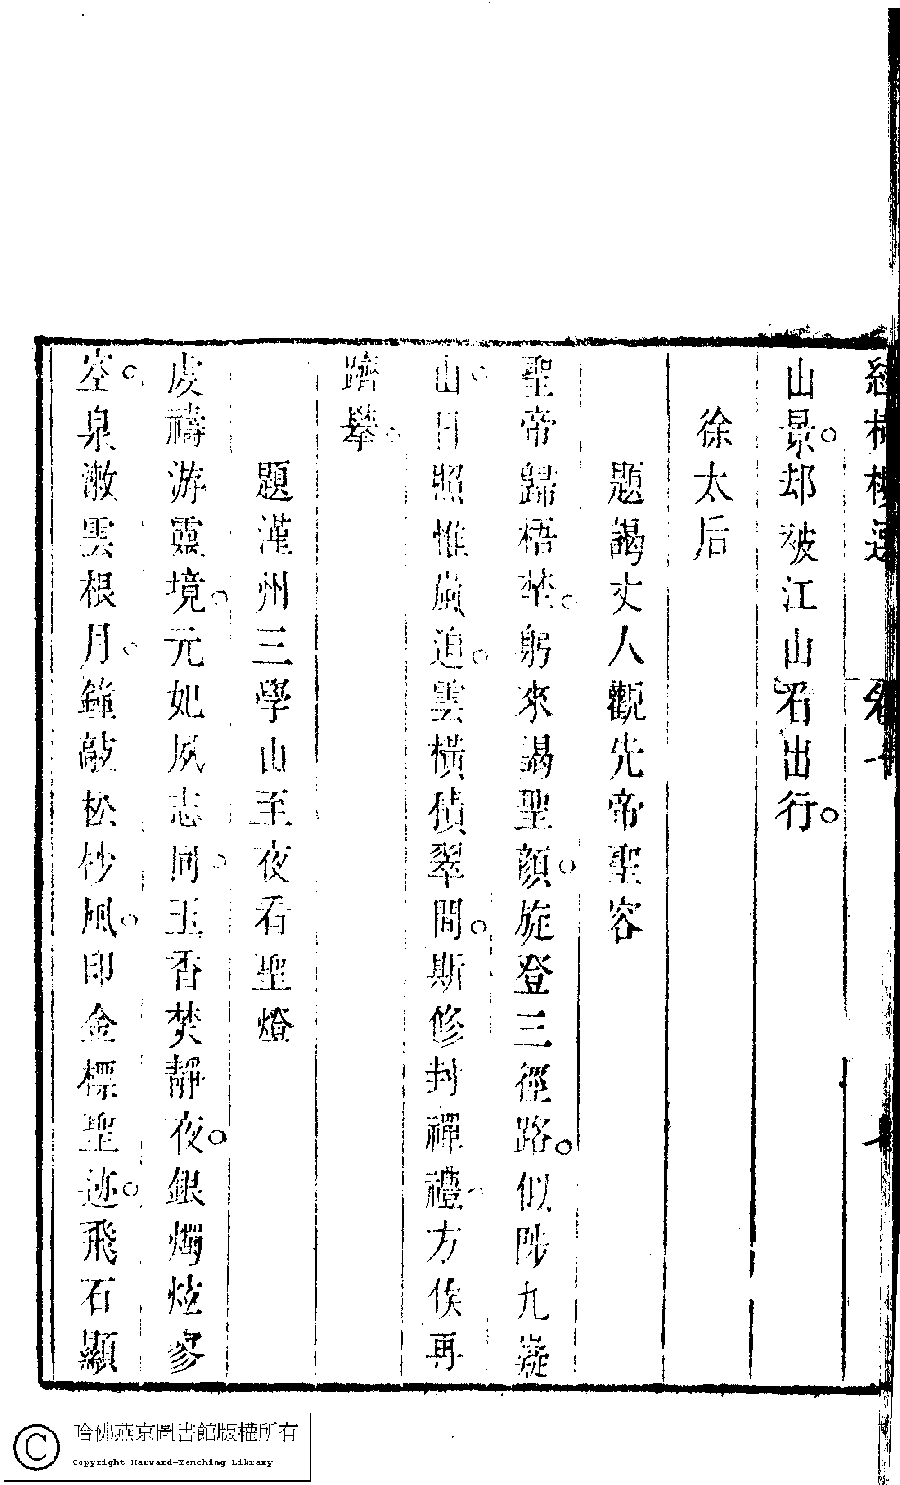 山景。却被江山看出行。
徐太后
題謁丈人觀先帝聖容
聖帝歸梧埜。躬來謁聖顏。旋登三徑路。似陟九嶷
山。日照惟嵐迫。雲橫積翠間。斯修封禪禮。方俟再
躋攀。
題漢州三學山至夜看聖燈
虔禱游靈境。元妃夙志同。玉香焚靜夜。銀燭炫寥
空。泉漱雲根月。鐘敲松杪風。印金標聖迹。飛石顯
哈佛燕京圖書館版權所有
Copyright Harvard-Yenching Library